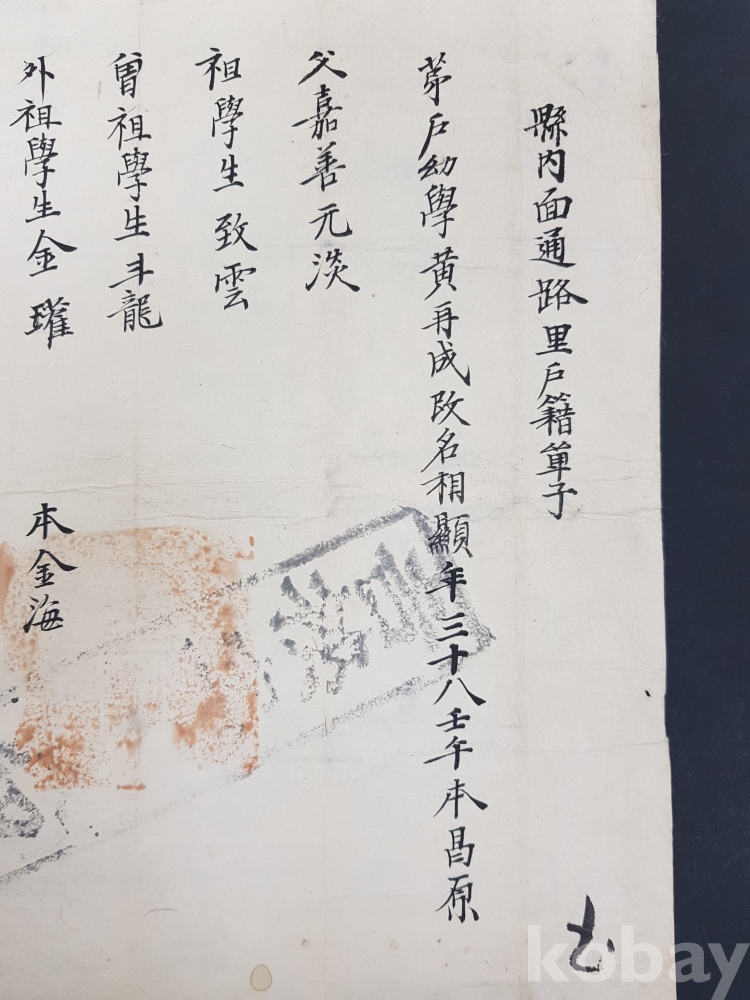 縣內面通路里戶籍單子
第戶幼學黃再成改名相顯年三十八壬午本昌原
父嘉善元淡
祖學生致雲
曾祖學生斗龍
外祖學生金㼁 本金海
kobay